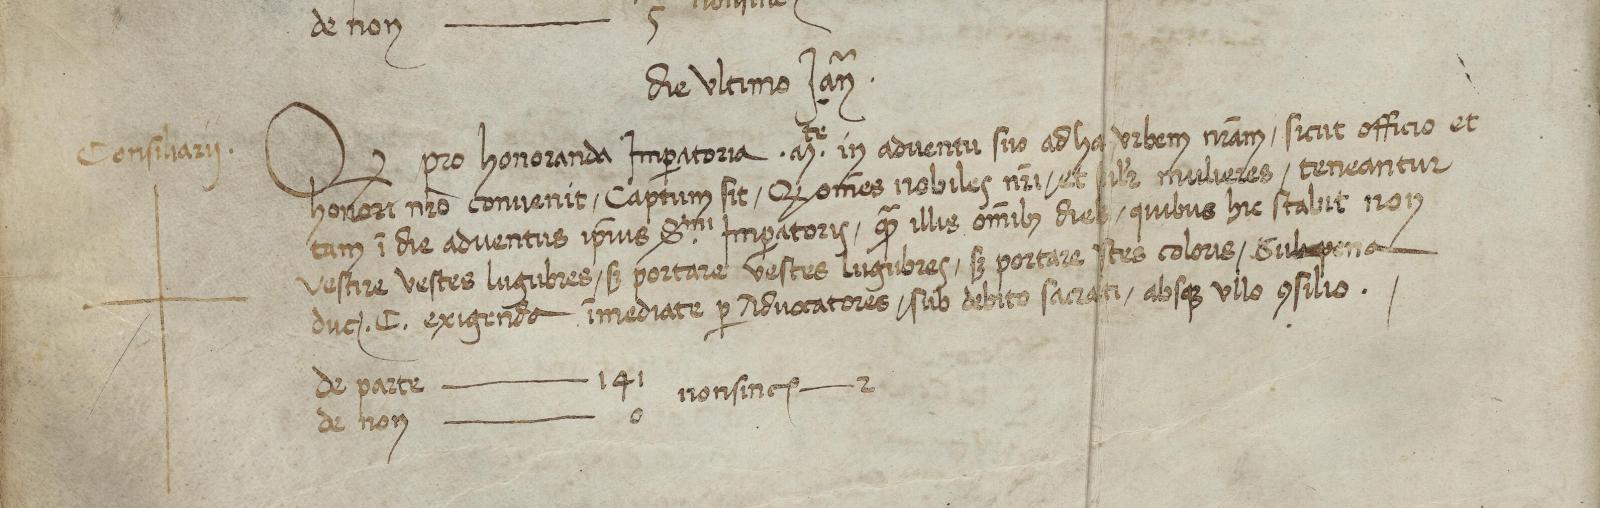 nonsince
de non ——— 5
die ultimo Jañ.
Consiliarij.
Q pro honoranda Impatoria .Mte. in adventu suo ad hâc Urbem nr̃am, sicut officio et
honori nr̃o convenit, Captum sit, Q omẽs nobiles nr̃i, et silr mulieres, teneantur
tam ĩ die adventus ip̃ius S.mi Impatoris, q̃ illis om̃ib dieb, quibus hic stabit non
vestire vestes lugubres, sꝫ portare vestes lugubres, sꝫ portare vestes coloris, Sub pena
duc. C. exigenda ĩmediate p Advocatores, sub debito sacrati, absqꝫ ullo ꝯsilio.
de parte ——— 141 nonsince — 2
de non ——— 0